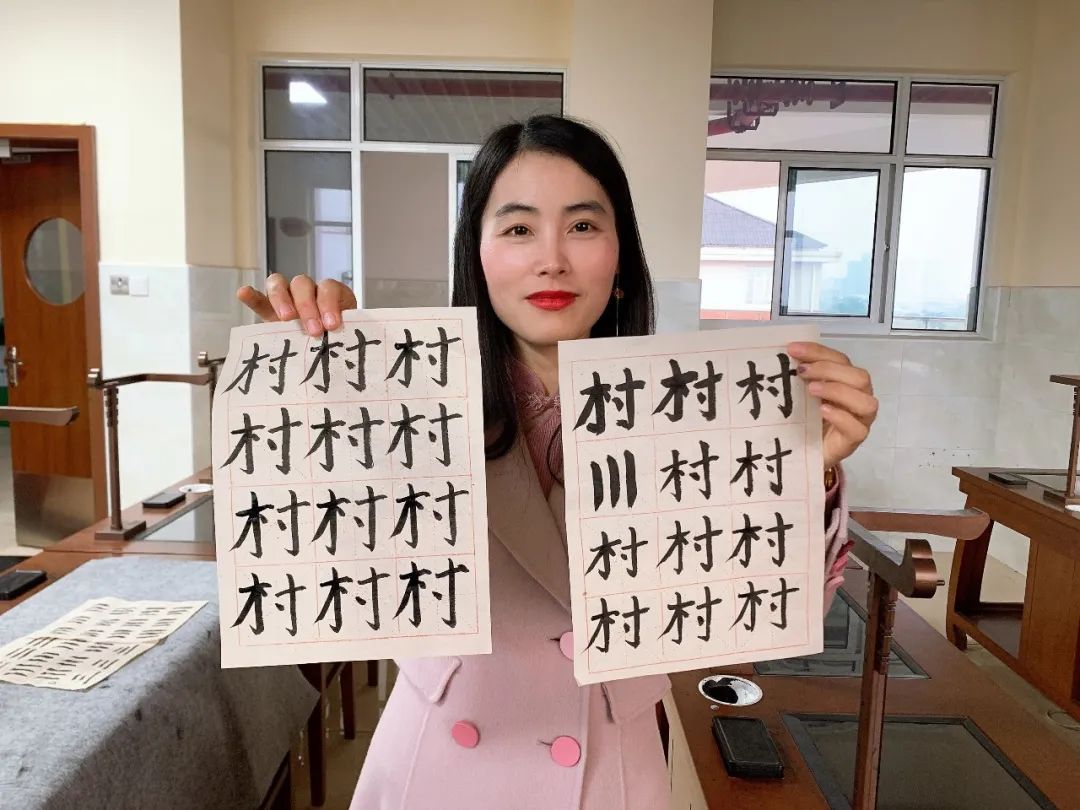 村村村
村村村
村村村
村村村
村村村
川村村
村村村
村村村